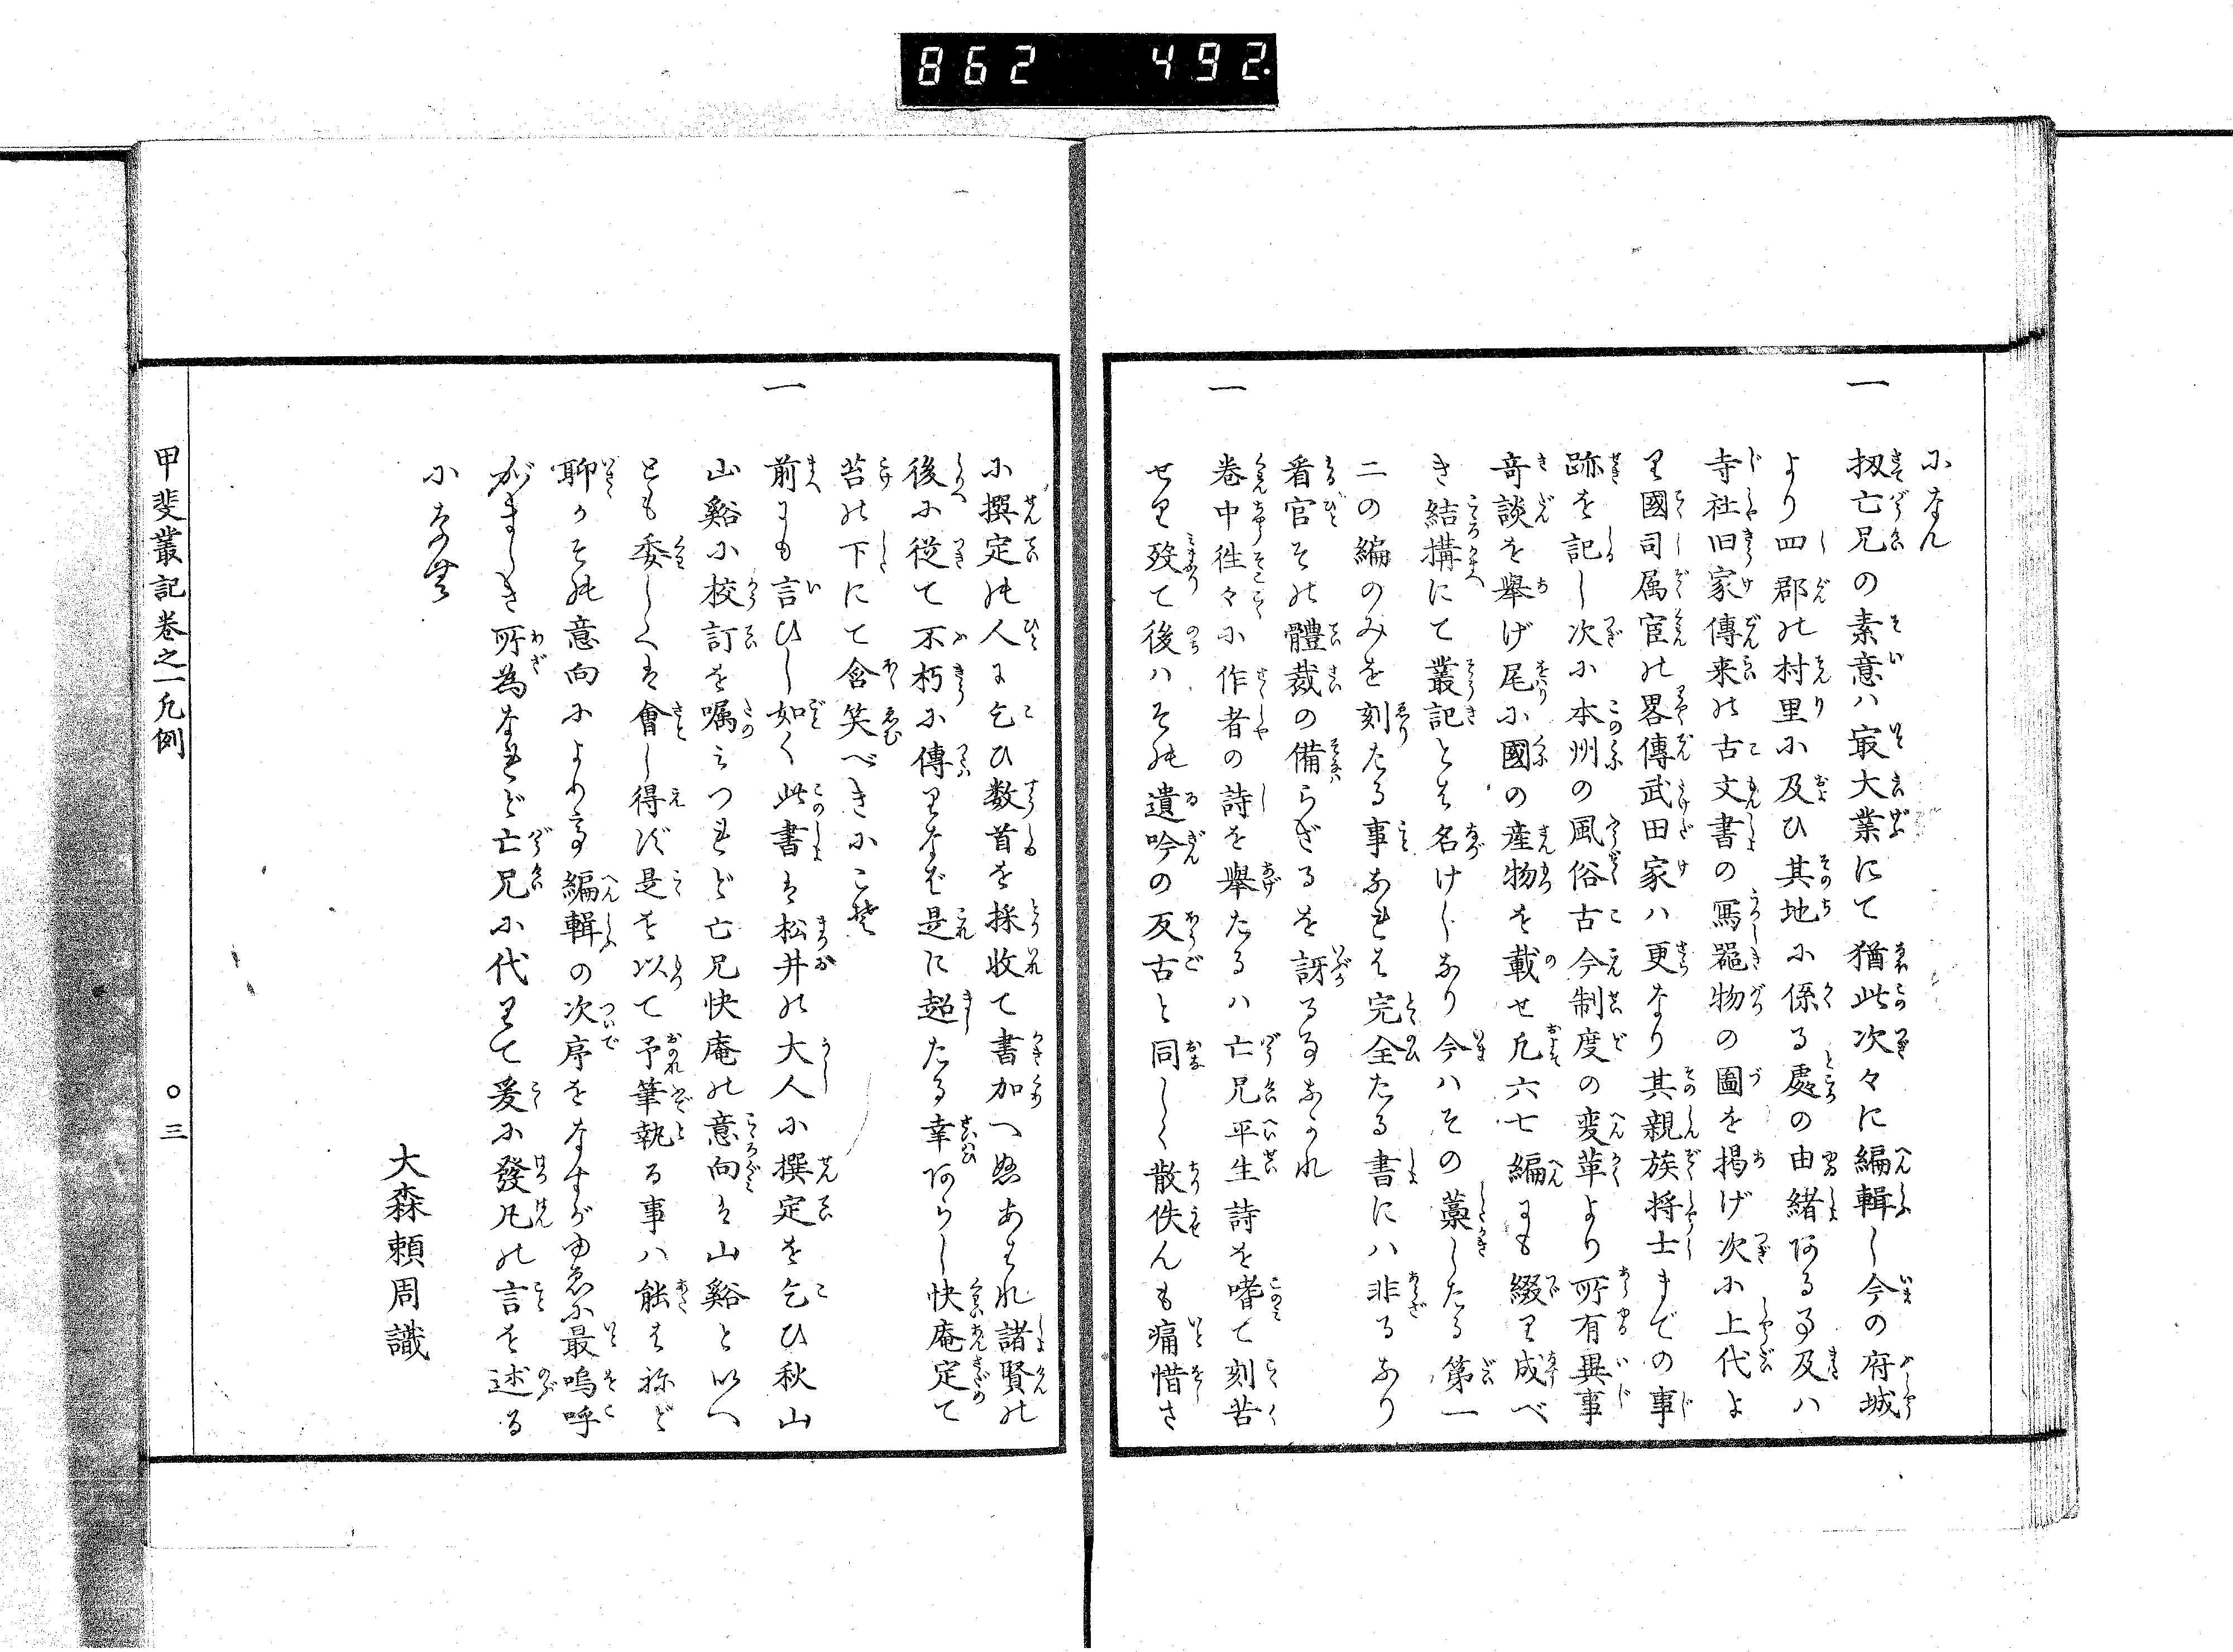 862 492.
になん
一 扨亡兄の素意ハ最大業にて猶此次々に編輯し今の府城
より四郡の村里に及ひ其地に係る處の由緒ある事及ハ
寺社旧家傳来の古文書の寫噐物の圖を掲げ次に上代よ
り國司属官の畧傳武田家ハ更なり其親族将士までの事
跡を記し次に本州の風俗古今制度の変革より所有異事
竒談を舉げ尾に國の産物を載せ凡六七編にも綴り成べ
き結構にて叢記とは名けしなり今ハその藁したる第一
二の編のみを刻たる事なれは完全たる書にハ非るなり
看官その體裁の備らざるを訝る事なかれ
一 巻中徃々に作者の詩を舉たるハ亡兄平生詩を嗜て刻苦
せり歿て後ハその遺吟の反古と同しく散佚んも痛惜さ
に撰定の人に乞ひ数首を採收て書加へぬあはれ諸賢の
後に従て不朽に傳りなば是に超たる幸あらし快庵定て
苔の下にて含笑べきにこそ
一 前にも言ひし如く此書は松井の大人に撰定を乞ひ秋山
山谿に校訂を嘱みつれど亡兄快庵の意向は山谿と以へ
とも委しくは會し得ず是を以て予筆執る事ハ能はねど
聊かその意向により高編輯の次序をなすがゆゑに最嗚呼
がましき所為なれど亡兄に代りて爰に發凡の言を述る
になむ
大森頼周識
甲斐叢記巻之一凡例 ○三